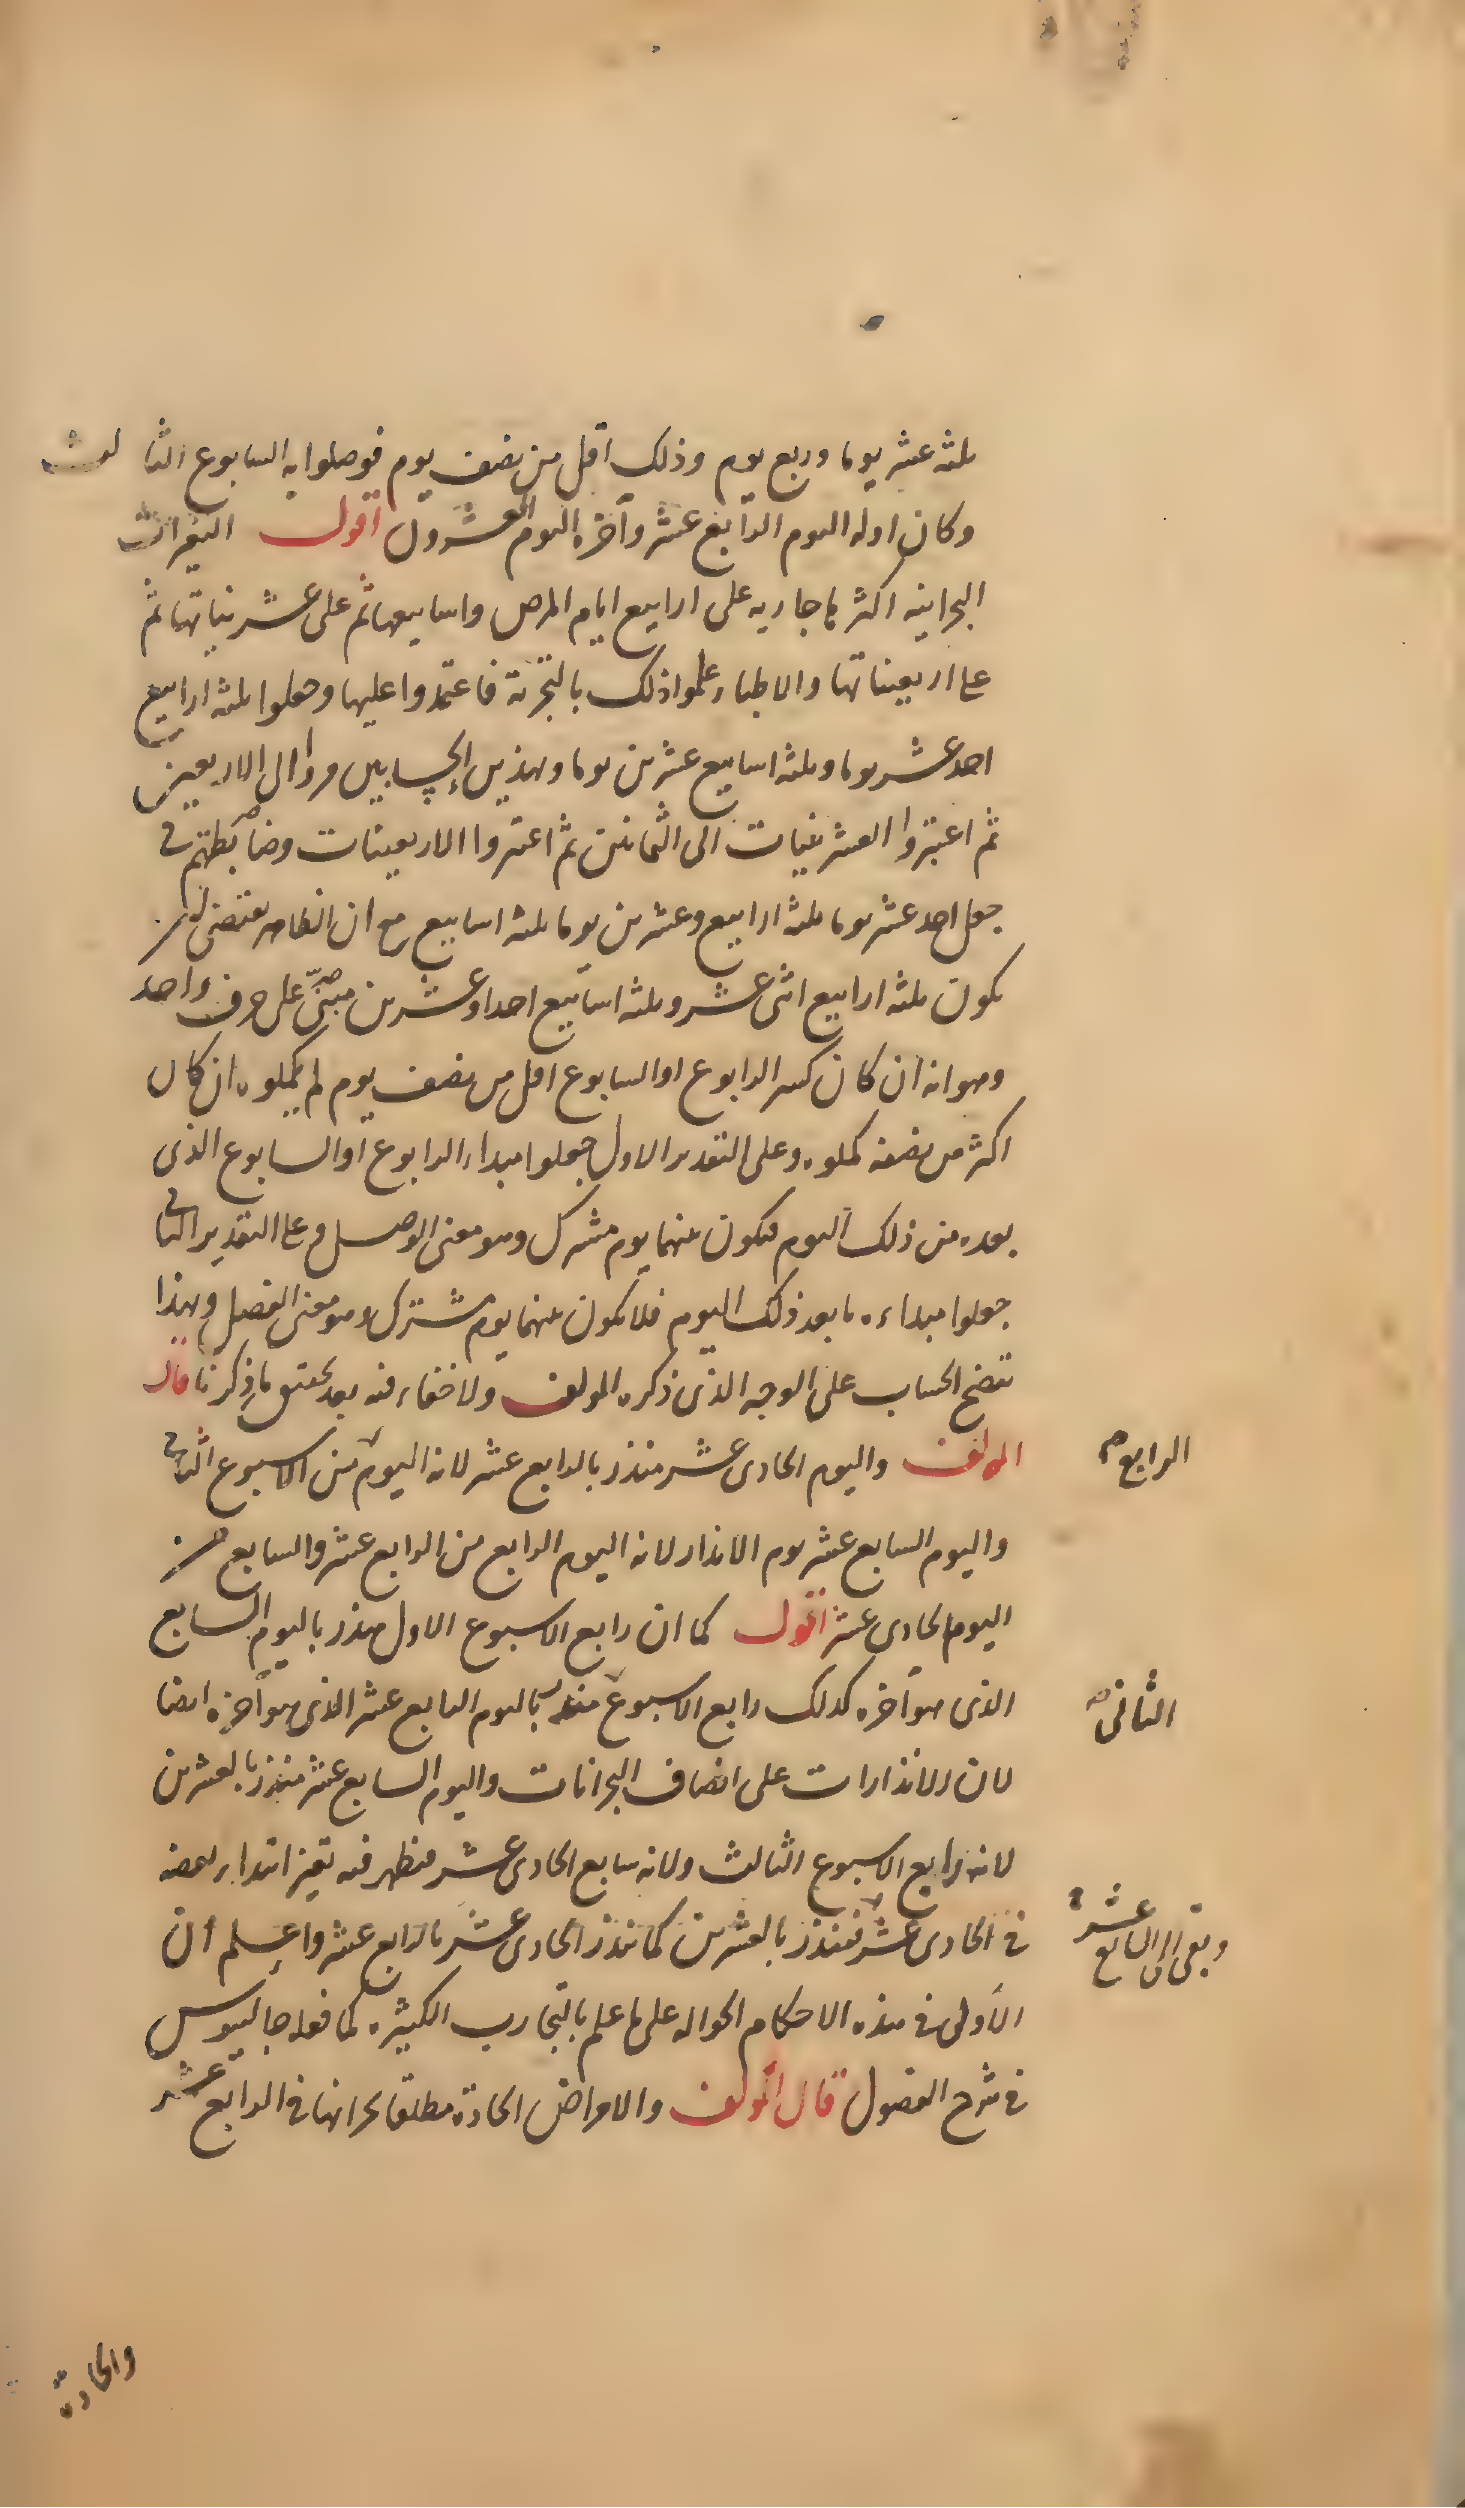 ثلثه عشر يوما وربع يوم وذلك اقل من نصف يوم فوصلوا به السابوع الثالث
وكان اوله اليوم الرابع عشر وآخره اليوم العشرون اقول التغيرات
البحرانيه اكثر ما جاريه على ارابيع ايام المرض واسابيعها ثم على عشرينياتها ثم
على اربعيناتها والاطباء علموا ذلك بالتجربة فاعتمدوا عليها وجعلوا ثلثه ارابيع
احد عشر يوما وثلثه اسابيع عشرين يوما وبهذين الحسابين مروا الى الاربعين
ثم اعتبروا العشرينيات الى الثمانين ثم اعتبروا الاربعينات وضابطتهم في
جعل احد عشر يوما ثلثه ارابيع وعشرين يوما ثلثه اسابيع مع ان الظاهر يقتضى ان
يكون ثلثه ارابيع اثنى عشر وثلثه اسابيع احدا وعشرين مبنى على حرف واحد
وهو انه ان كان كسر الرابوع او السابوع اقل من نصف يوم لم يكملوه وان كان
اكثر من نصفه كملوه وعلى التقدير الاول جعلوا مبداء الرابوع او السابوع الذى
بعده من ذلك اليوم فيكون بينهما يوم مشترك وهو معنى الوصل وعلى التقدير الثانى
جعلوا مبداءه ما بعد ذلك اليوم فلا يكون بينهما يوم مشترك وهو معنى الفصل وبهذا
يتضح الحساب على الوجه الذى ذكره المولف ولا خفاء فيه بعد تحقق ما ذكرنا قال
المولف واليوم الحادى عشر منذر بالرابع عشر لانه اليوم من الاسبوع الثانى
الرابع
واليوم السابع عشر يوم الانذار لانه اليوم الرابع من الرابع عشر والسابع من
اليوم الحادى عشر اقول كما ان رابع الاسبوع الاول منذر باليوم السابع
الذى هو آخره كذلك رابع الاسبوع منذر باليوم الرابع عشر الذى هو آخره ايضا
الثانى
لان الانذارات على انصاف البحرانات واليوم السابع عشر منذر بالعشرين
لانه رابع الاسبوع الثالث ولانه سابع الحادى عشر فيظهر فيه تغير ابتداء بعضه
في الحادى عشر فينذر بالعشرين كما ينذر الحادى عشر بالرابع عشر واعلم ان
وبقى الى السابع عشر
الأولى في هذه الاحكام الحواله على ما علم بالتجارب الكثيره كما فعله جالينوس
في شرح الفصول قال المولف والامراض الحادة مطلقا بحرانها في الرابع عشر
والحادة